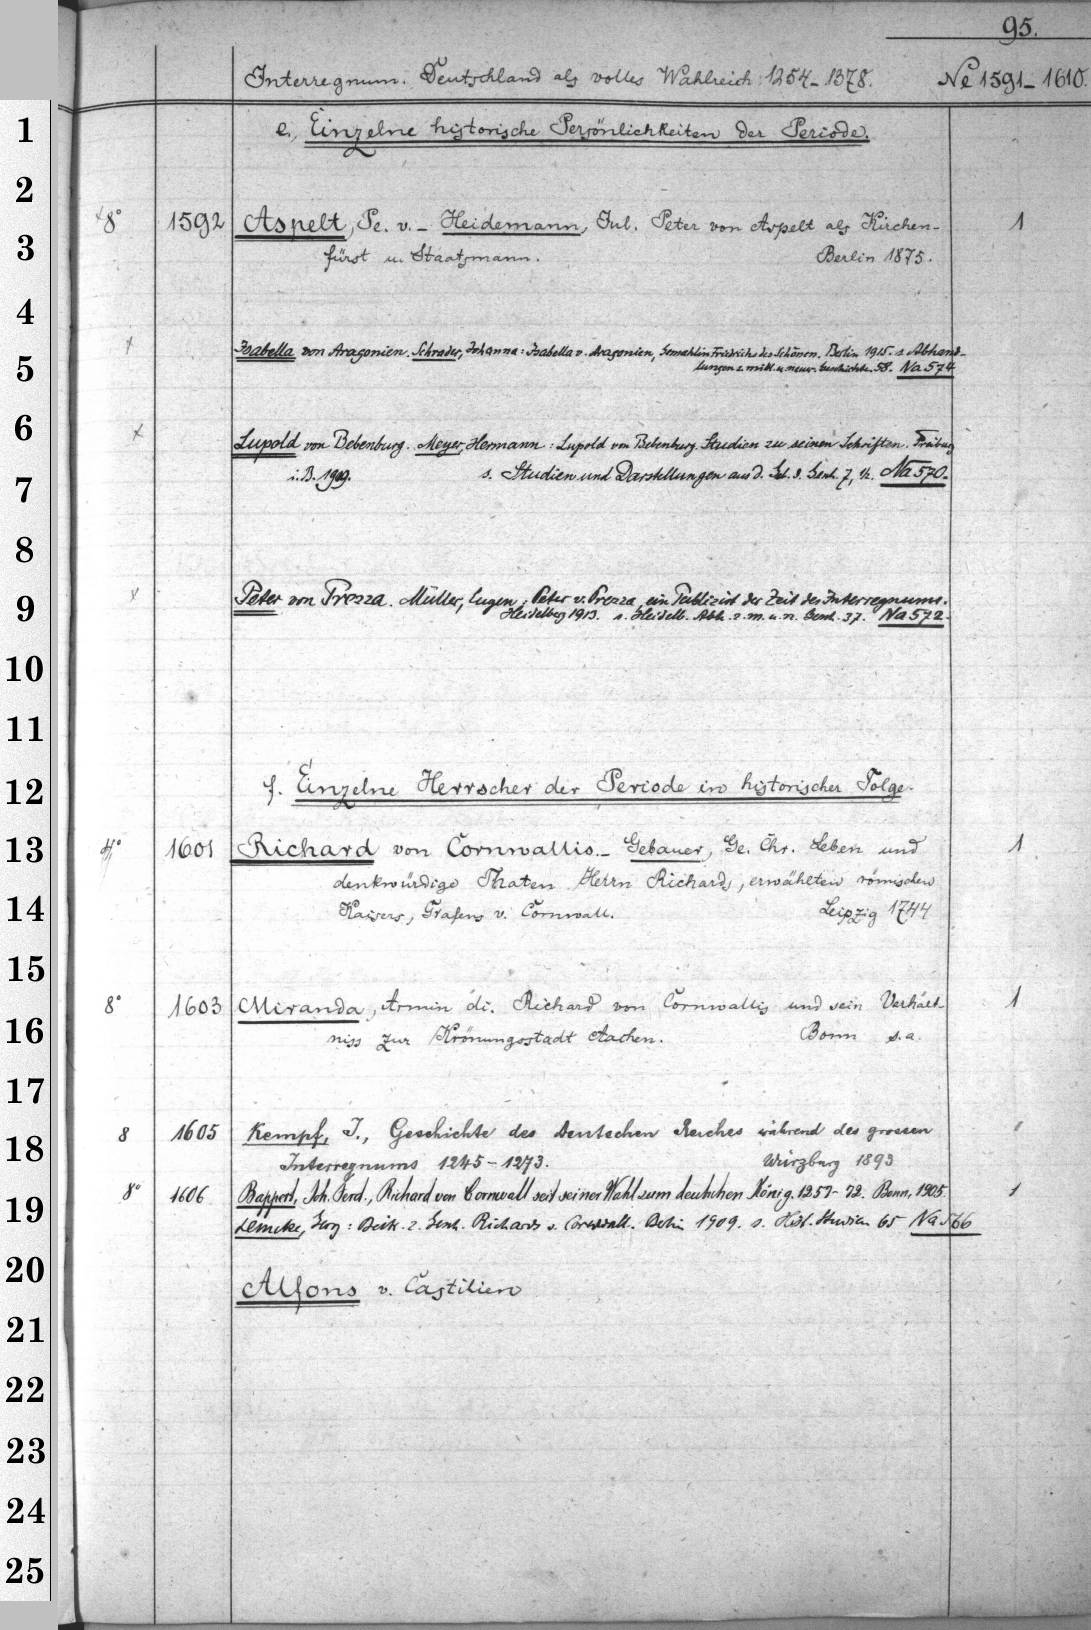 95.
Interregnum. Deutschland als volles Wahlreich 1254-1378. Ne 1591-1610.
1 e., Einzelne historische Persönlichkeiten der Periode.
2
8° 1592 Aspelt, Pe. v. - Heidemann, Jul. Peter von Aspelt als Kirchen- 1
3 fürst u. Staatsmann. Berlin 1875.
4
x Isabella von Aragonien. Schrader, Johanna: Isabella v. Aragonien, Gemahlin Friedrichs des Schönen. Berlin 1915. s. Abhand-
5 lungen z. mittl. u. neuer. Geschichte. 58. Na 574
6 x Lupold von Bebenburg. Meyer, Hermann: Lupold von Bebenburg. Studien zu seinen Schriften. Freiburg
7 i. B. 1909. s. Studien und Darstellungen aus d. Geb. d. Gesch. 7, 1/2. Na 570.
8
9 x Peter von Prezza. Müller, Eugen: Peter v. Prezza, ein Publizist der Zeit des Interregnums.
Heidelberg 1913. s. Heidelb. Abh. z. m. u. n. Gesch. 37. Na 572.
10
11
12 f. Einzelne Herrscher der Periode in historischer Folge.
13 4° 1601 Richard von Cornwallis. - Gebauer, Ge. Chr. Leben und 1
denkwürdige Thaten Herrn Richards, erwählten römischen
14 Kaisers, Grafens v. Cornwall. Leipzig 1744
15
8° 1603 Miranda, Armin di. Richard von Cornwallis und sein Verhält- 1
16 niss zur Krönungsstadt Aachen. Bonn s. a.
17
8 1605 Kempf, J., Geschichte des deutschen Reiches während des grossen
18 Interregnums 1245-1273. Würzburg 1893
8° 1606 Bappert, Joh. Ferd., Richard von Cornwall seit seiner Wahl zum deutschen König. 1257-72. Bonn, 1905. 1
19 Lemcke, Georg: Beitr. z. Gesch. Richards v. Cornwall. Berlin 1909. s. Hist. Studien 65 Na 566
20 Alfons v. Castilien
21
22
23
24
25